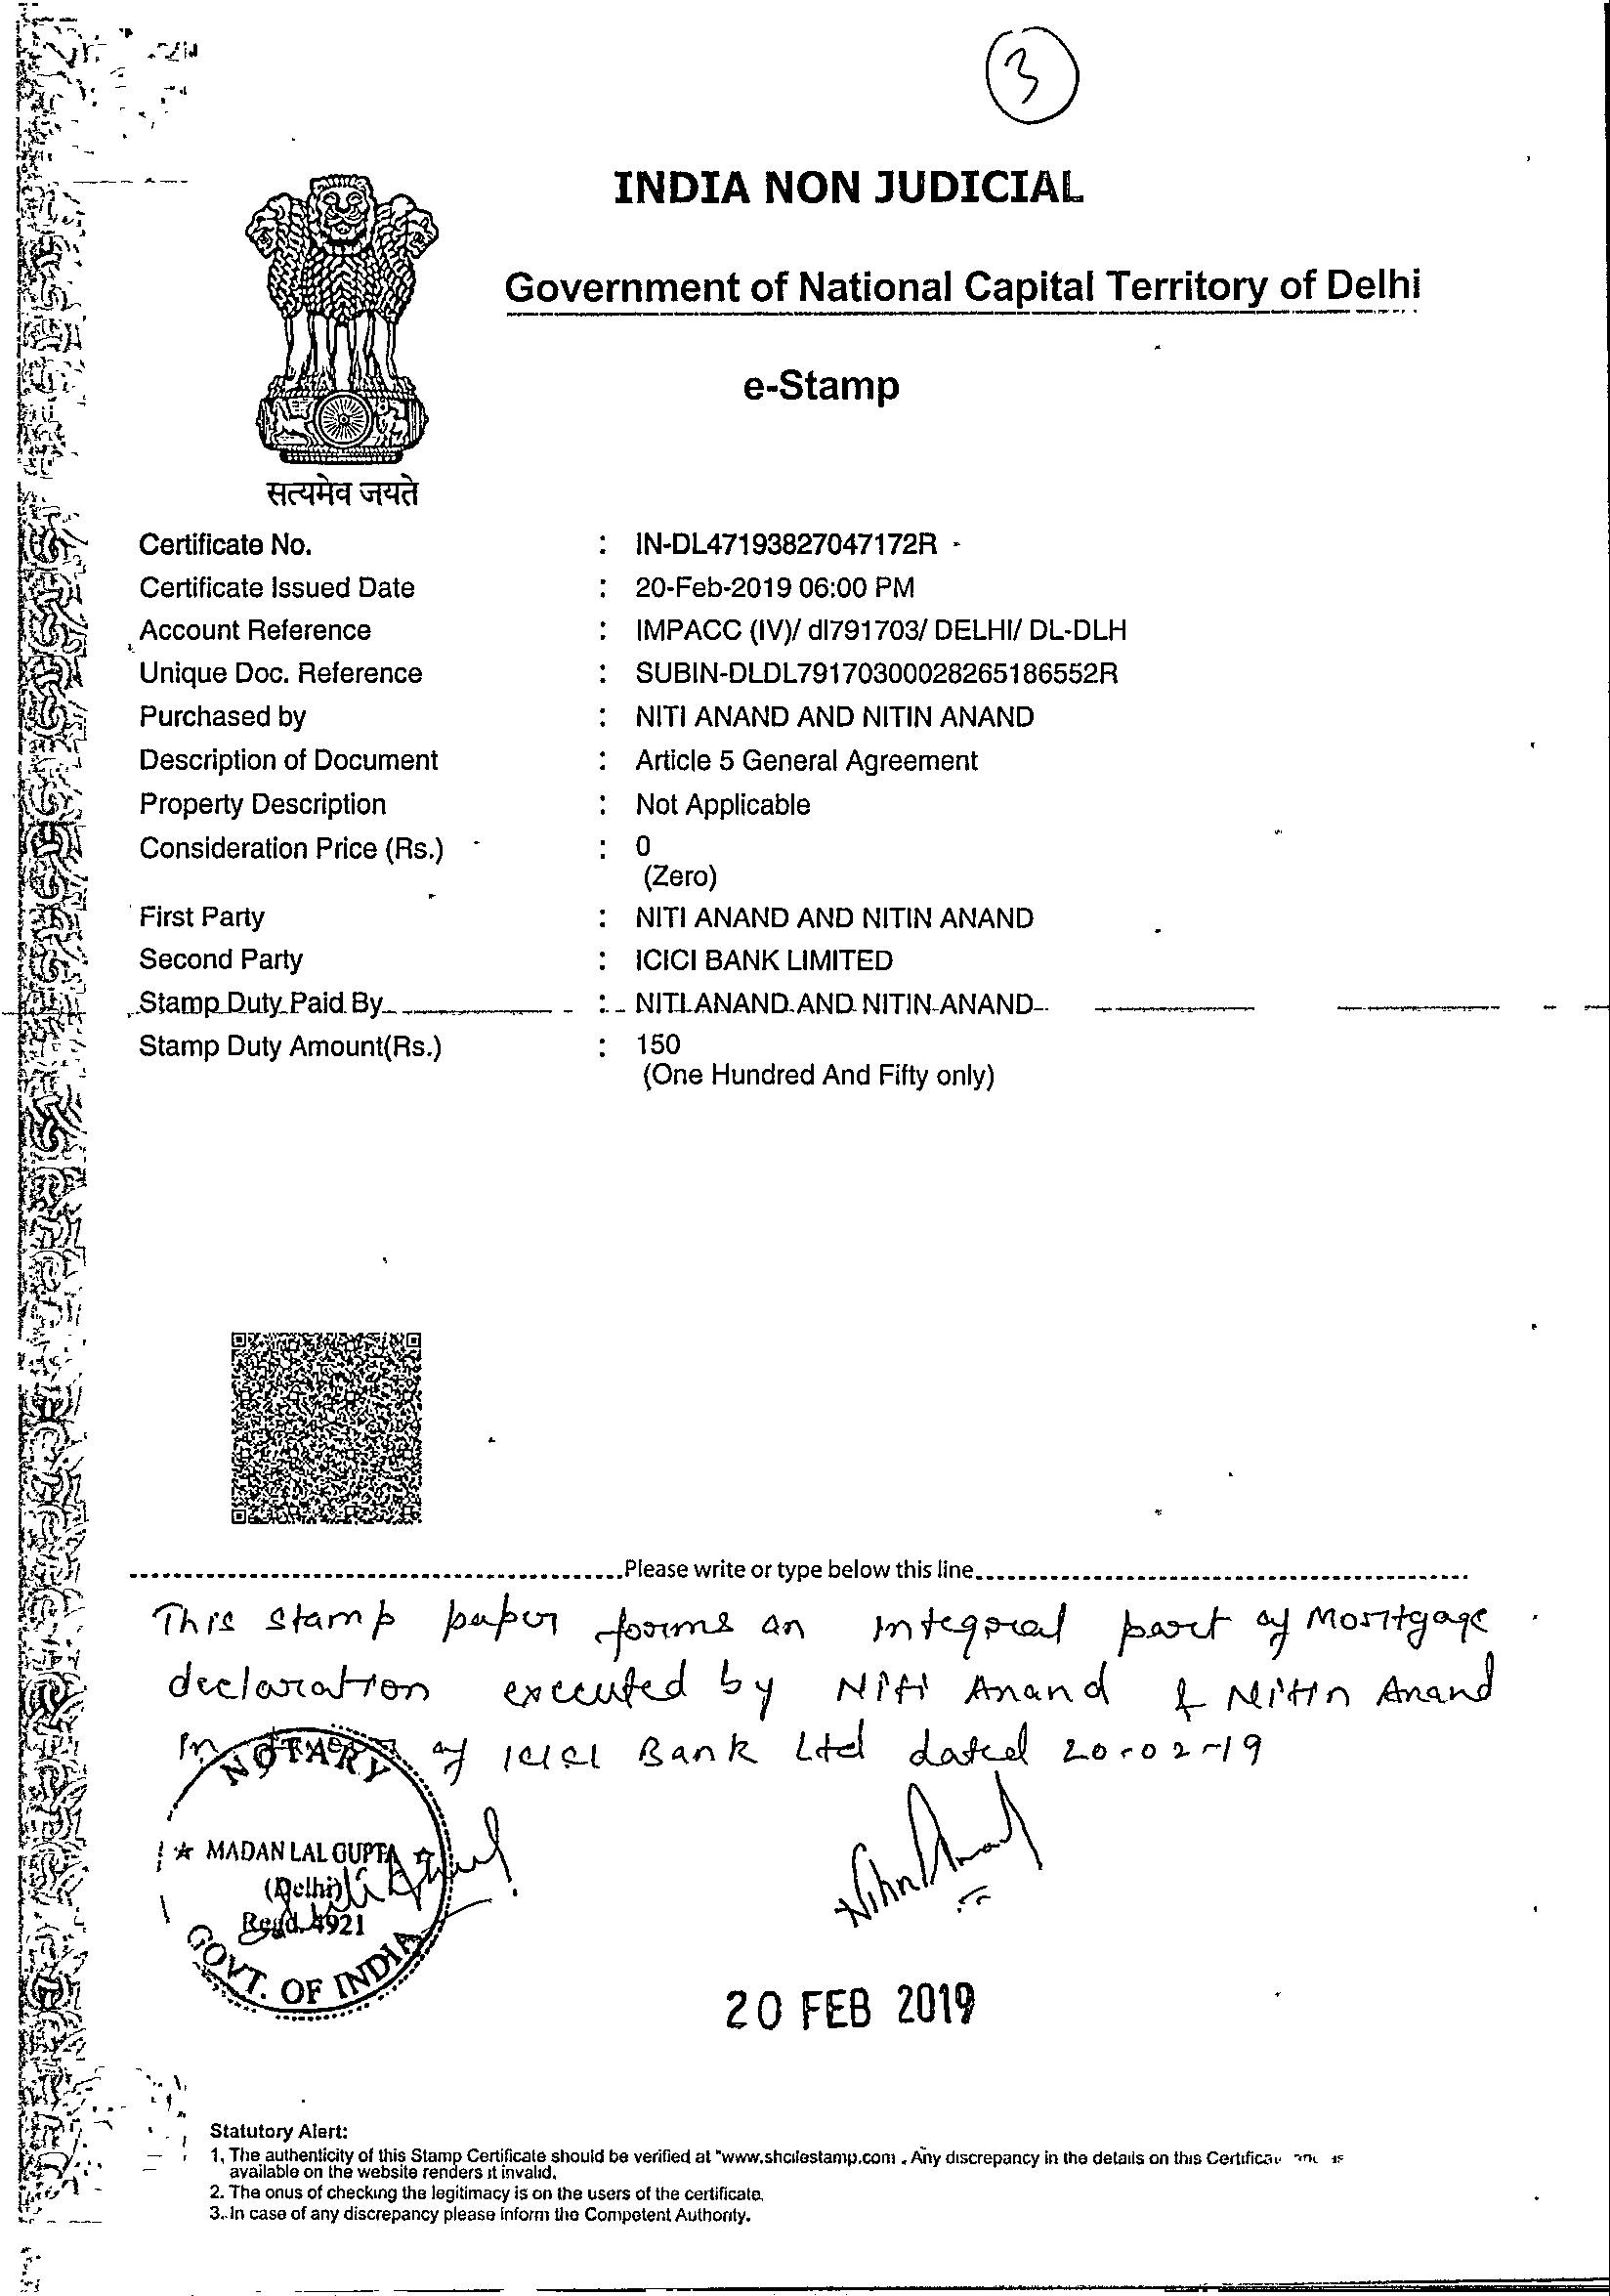 3
INDIA NON JUDICIAL
Government of National Capital Territory of Delhi
e-Stamp
सत्यमेव जयते
Certificate No. : IN-DL47193827047172R
Certificate Issued Date : 20-Feb-2019 06:00 PM
Account Reference : IMPACC (IV)/ dl791703/ DELHI/ DL-DLH
Unique Doc. Reference : SUBIN-DLDL79170300028265186552R
Purchased by : NITI ANAND AND NITIN ANAND
Description of Document : Article 5 General Agreement
Property Description : Not Applicable
Consideration Price (Rs.) : 0
(Zero)
First Party : NITI ANAND AND NITIN ANAND
Second Party : ICICI BANK LIMITED
Stamp Duty Paid By : NITI ANAND AND NITIN ANAND
Stamp Duty Amount(Rs.) : 150
(One Hundred And Fifty only)
Please write or type below this line
This stamp paper forms an integral part of Mortgage
declaration executed by Niti Anand & Nitin Anand
In of ICICI Bank Ltd dated 20-02-19
NOTARY
MADAN LAL GUPTA
(Delhi)
Regd. 4921
GOVT. OF INDIA
Nitin Anand
20 FEB 2019
Statutory Alert:
1. The authenticity of this Stamp Certificate should be verified at "www.shcilestamp.com . Any discrepancy in the details on this Certificate
available on the website renders it invalid.
2. The onus of checking the legitimacy is on the users of the certificate.
3. In case of any discrepancy please inform the Competent Authority.